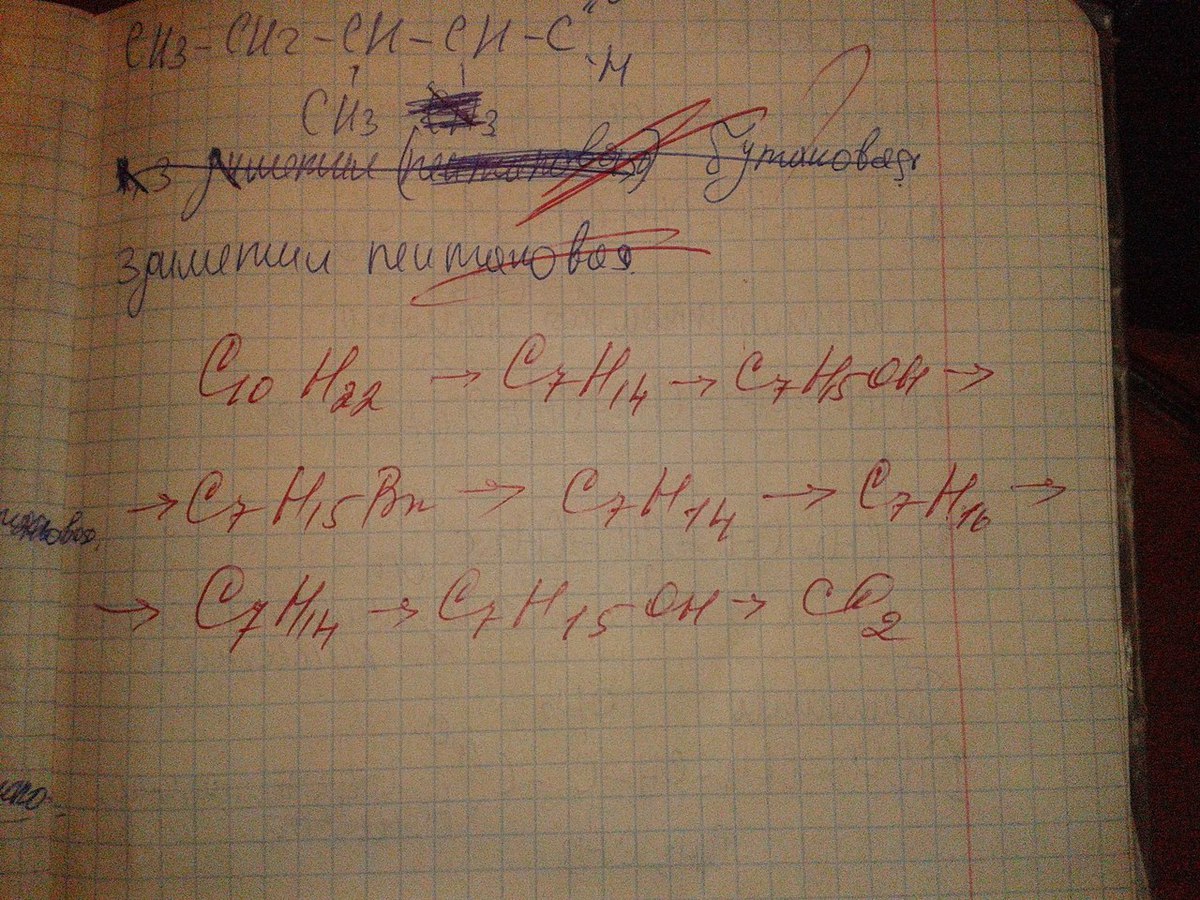 CH3-CH2-CH-CH-C
H
CH3 3
3 диметил бутановая
3диметил пентановая
C10H22 → C7H14 → C7H15OH →
→ C7H15Br → C7H14 → C7H16 →
→ C7H14 → C7H15OH → CO2